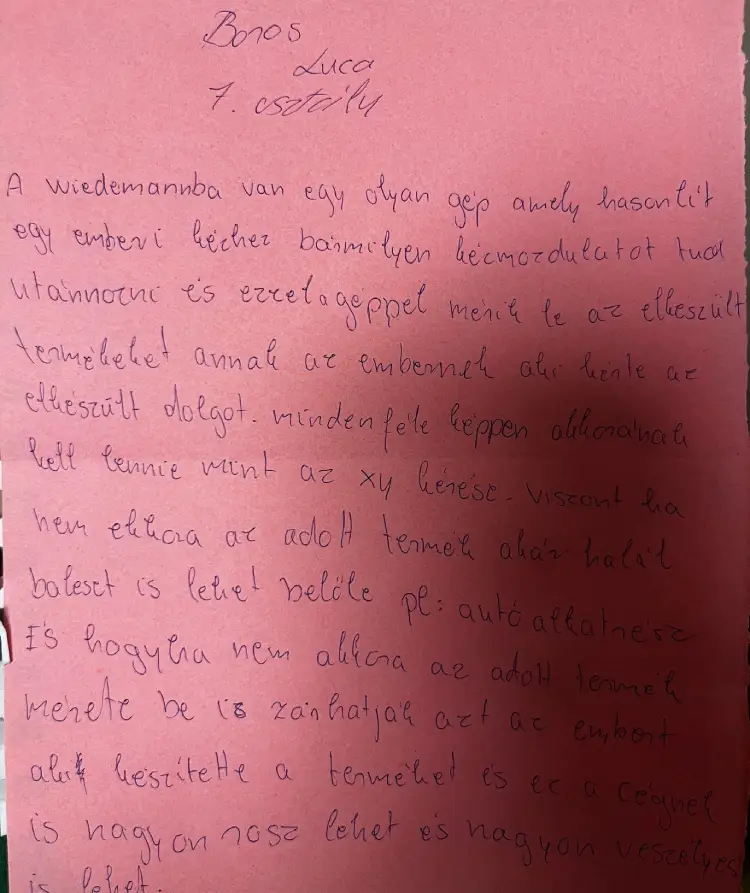 Boros
Luca
7. osztály
A wiedemannba van egy olyan gép amely hasonlít
egy emberi kézhez bármilyen kézmozdulatot tud
utánnozni és ezzel a géppel mérik le az elkészült
termékeket annak az embernek aki kérte az
elkészült dolgot. mindenféle képpen akkorának
kell lennie mint az xy kérése. viszont ha
nem ekkora az adott termék akár halál
baleset is lehet belőle pl: autó alkatrész
És hogyha nem akkora az adott termék
mérete be is zárhatják azt az embert
aki készítette a terméket és ez a cégnek
is nagyon rosz lehet és nagyon veszélyes
is lehet.